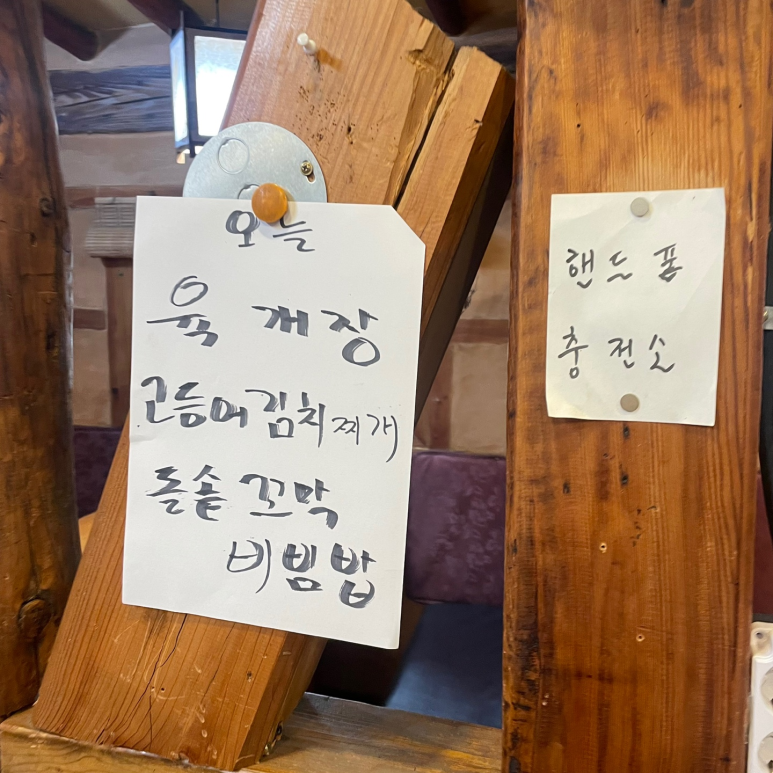 오늘
육개장
고등어김치찌개
돌솥 꼬막
비빔밥
핸드폰
충전소